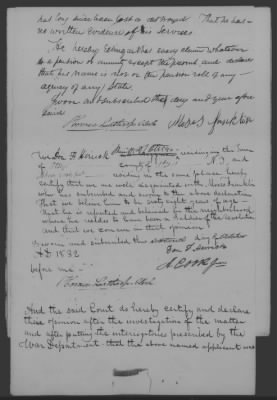 has long since been lost or destroyed. That he has
no written evidence of his services
He hereby relinquishes every claim whatever
to a pension or annuity except the present and declares
that his name is not on the pension roll of any
agency of any State.
Sworn and subscribed this day and year afore
said
Thomas Clerk Moses
We Dan F. residing in the
County of N.Y. and
residing in the same place hereby
certify that we are well acquainted with Moses
who has subscribed and sworn to the above declaration
that we believe him to be sixty eight years of age
that he is reputed and believed in the neighborhood
where he resides to have been a soldier of the revolution
and that we concur in that opinion.
Sworn and subscribed this day of
AD 1832 Dan F.
before me A Cook Jr
Thomas Clerk
And the said Court do hereby certify and declare
their opinion after the investigation of the matter
and after putting the interrogatories prescribed by the
War Department that the above named applicant was